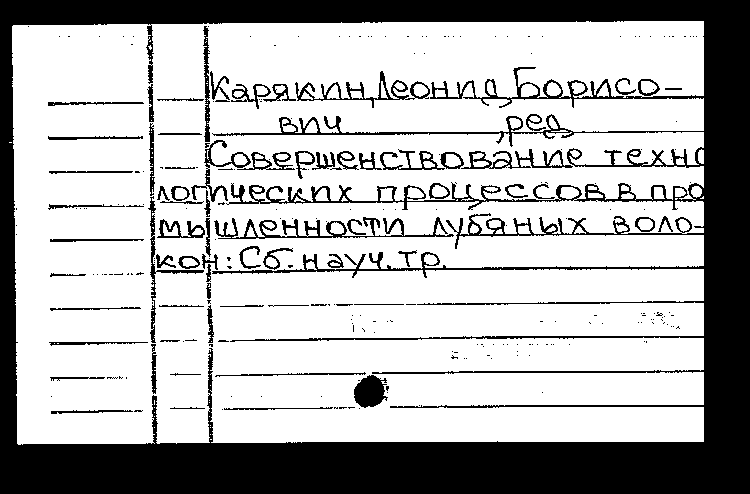 Карякин, Леонид Борисо-
вич, ред
Совершенствование техно
логических процессов в про
мышленности лубяных воло-
кон: Сб. науч. тр.